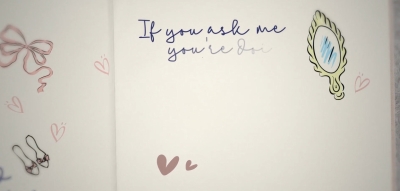 If you ask me
you're Doi